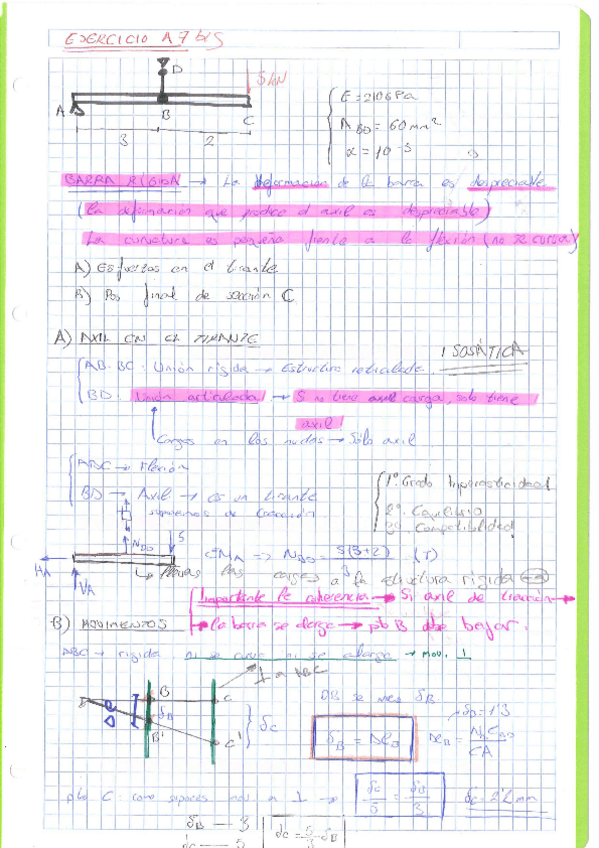 EJERCICIO A7 bis
D
5 kN
A
B
C
3
2
E = 210 GPa
A BD = 60 mm²
α = 10⁻⁵
BARRA RÍGIDA → La deformación de la barra es despreciable
(La deformación que produce el axil es despreciable)
La curvatura es pequeña frente a la flexión (no se curva)
A) Esfuerzos en el tirante
B) Pos final de sección C
A) AXIL EN EL TIRANTE
ISOSTÁTICA
AB-BC: Unión rígida → Estructura reticulada
BD: Unión articulada → Si no tiene axil carga, solo tiene
axil
Cargas en los nudos → Sólo axil
ABC → Flexión
BD → Axil → es un tirante
suponemos de tracción
1º. Grado hiperestaticidad
2º. Equilibrio
3º. Compatibilidad
N BD
5
HA
VA
ΣM A => N BD = 5(3+2)/3 (T)
las cargas a la estructura rígida
Importante la referencia → Si axil de tracción →
B) MOVIMIENTOS
→ la barra se alarga → pto B debe bajar.
ABC → rígida, ni se curva ni se alarga → mov. ⊥
⊥ a ABC
B
C
δB
B'
C'
δC
DB se mueve δB
δB = 1'3
δB = ΔL BD
pto C: como supones mov a ⊥ →
δC/5 = δB/3
δC = 2'2 mm
δB — 3
δC — 5
δC = 5/3 δB